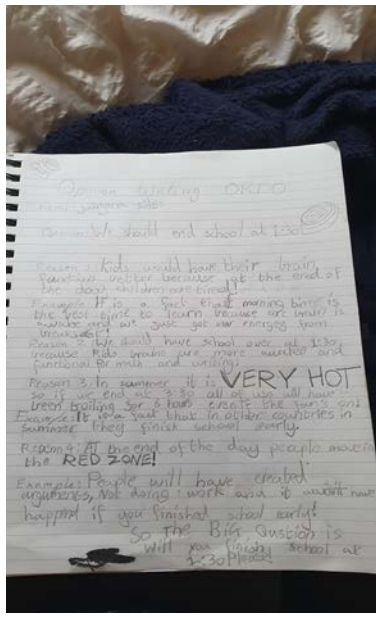 Opinion Writing OREO
We should end school at 1:30
Reason : Kids would have their brain
function better because at the end of
the day, children are tired!
Example: It is a fact that morning time is
the best time to learn because
awake and we just got our energy from
breakfast!
Reason 2: We should have school over at 1:30
because Kids brains are more awaked and
functional for math and writing.
Reason 3: In summer it is VERY HOT
so if we end at 3:30 all of us will have
been broiling for 6 hours the sun's on!
Example: It is a fact that in other countries in
Summer they finish school early.
Reason 4: At the end of the day people move in
the RED ZONE!
Example: People will have created
arguments, Not doing work and it wouldn't have
happend if you finished school early!
So The BIG Qustion is
Will you finish school at
1:30 Please!